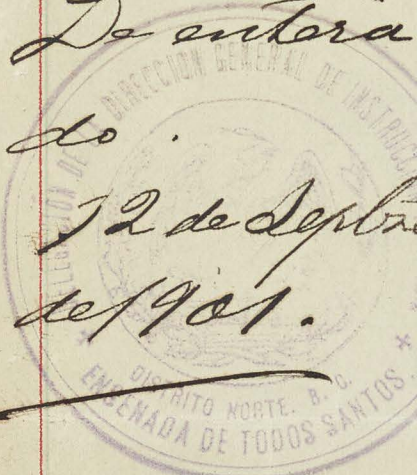 De entera
do.
12 de Septbre
de 1901.
DIRECCION GENERAL DE INSTRUCC
DISTRITO NORTE. B. C.
ENSENADA DE TODOS SANTOS.